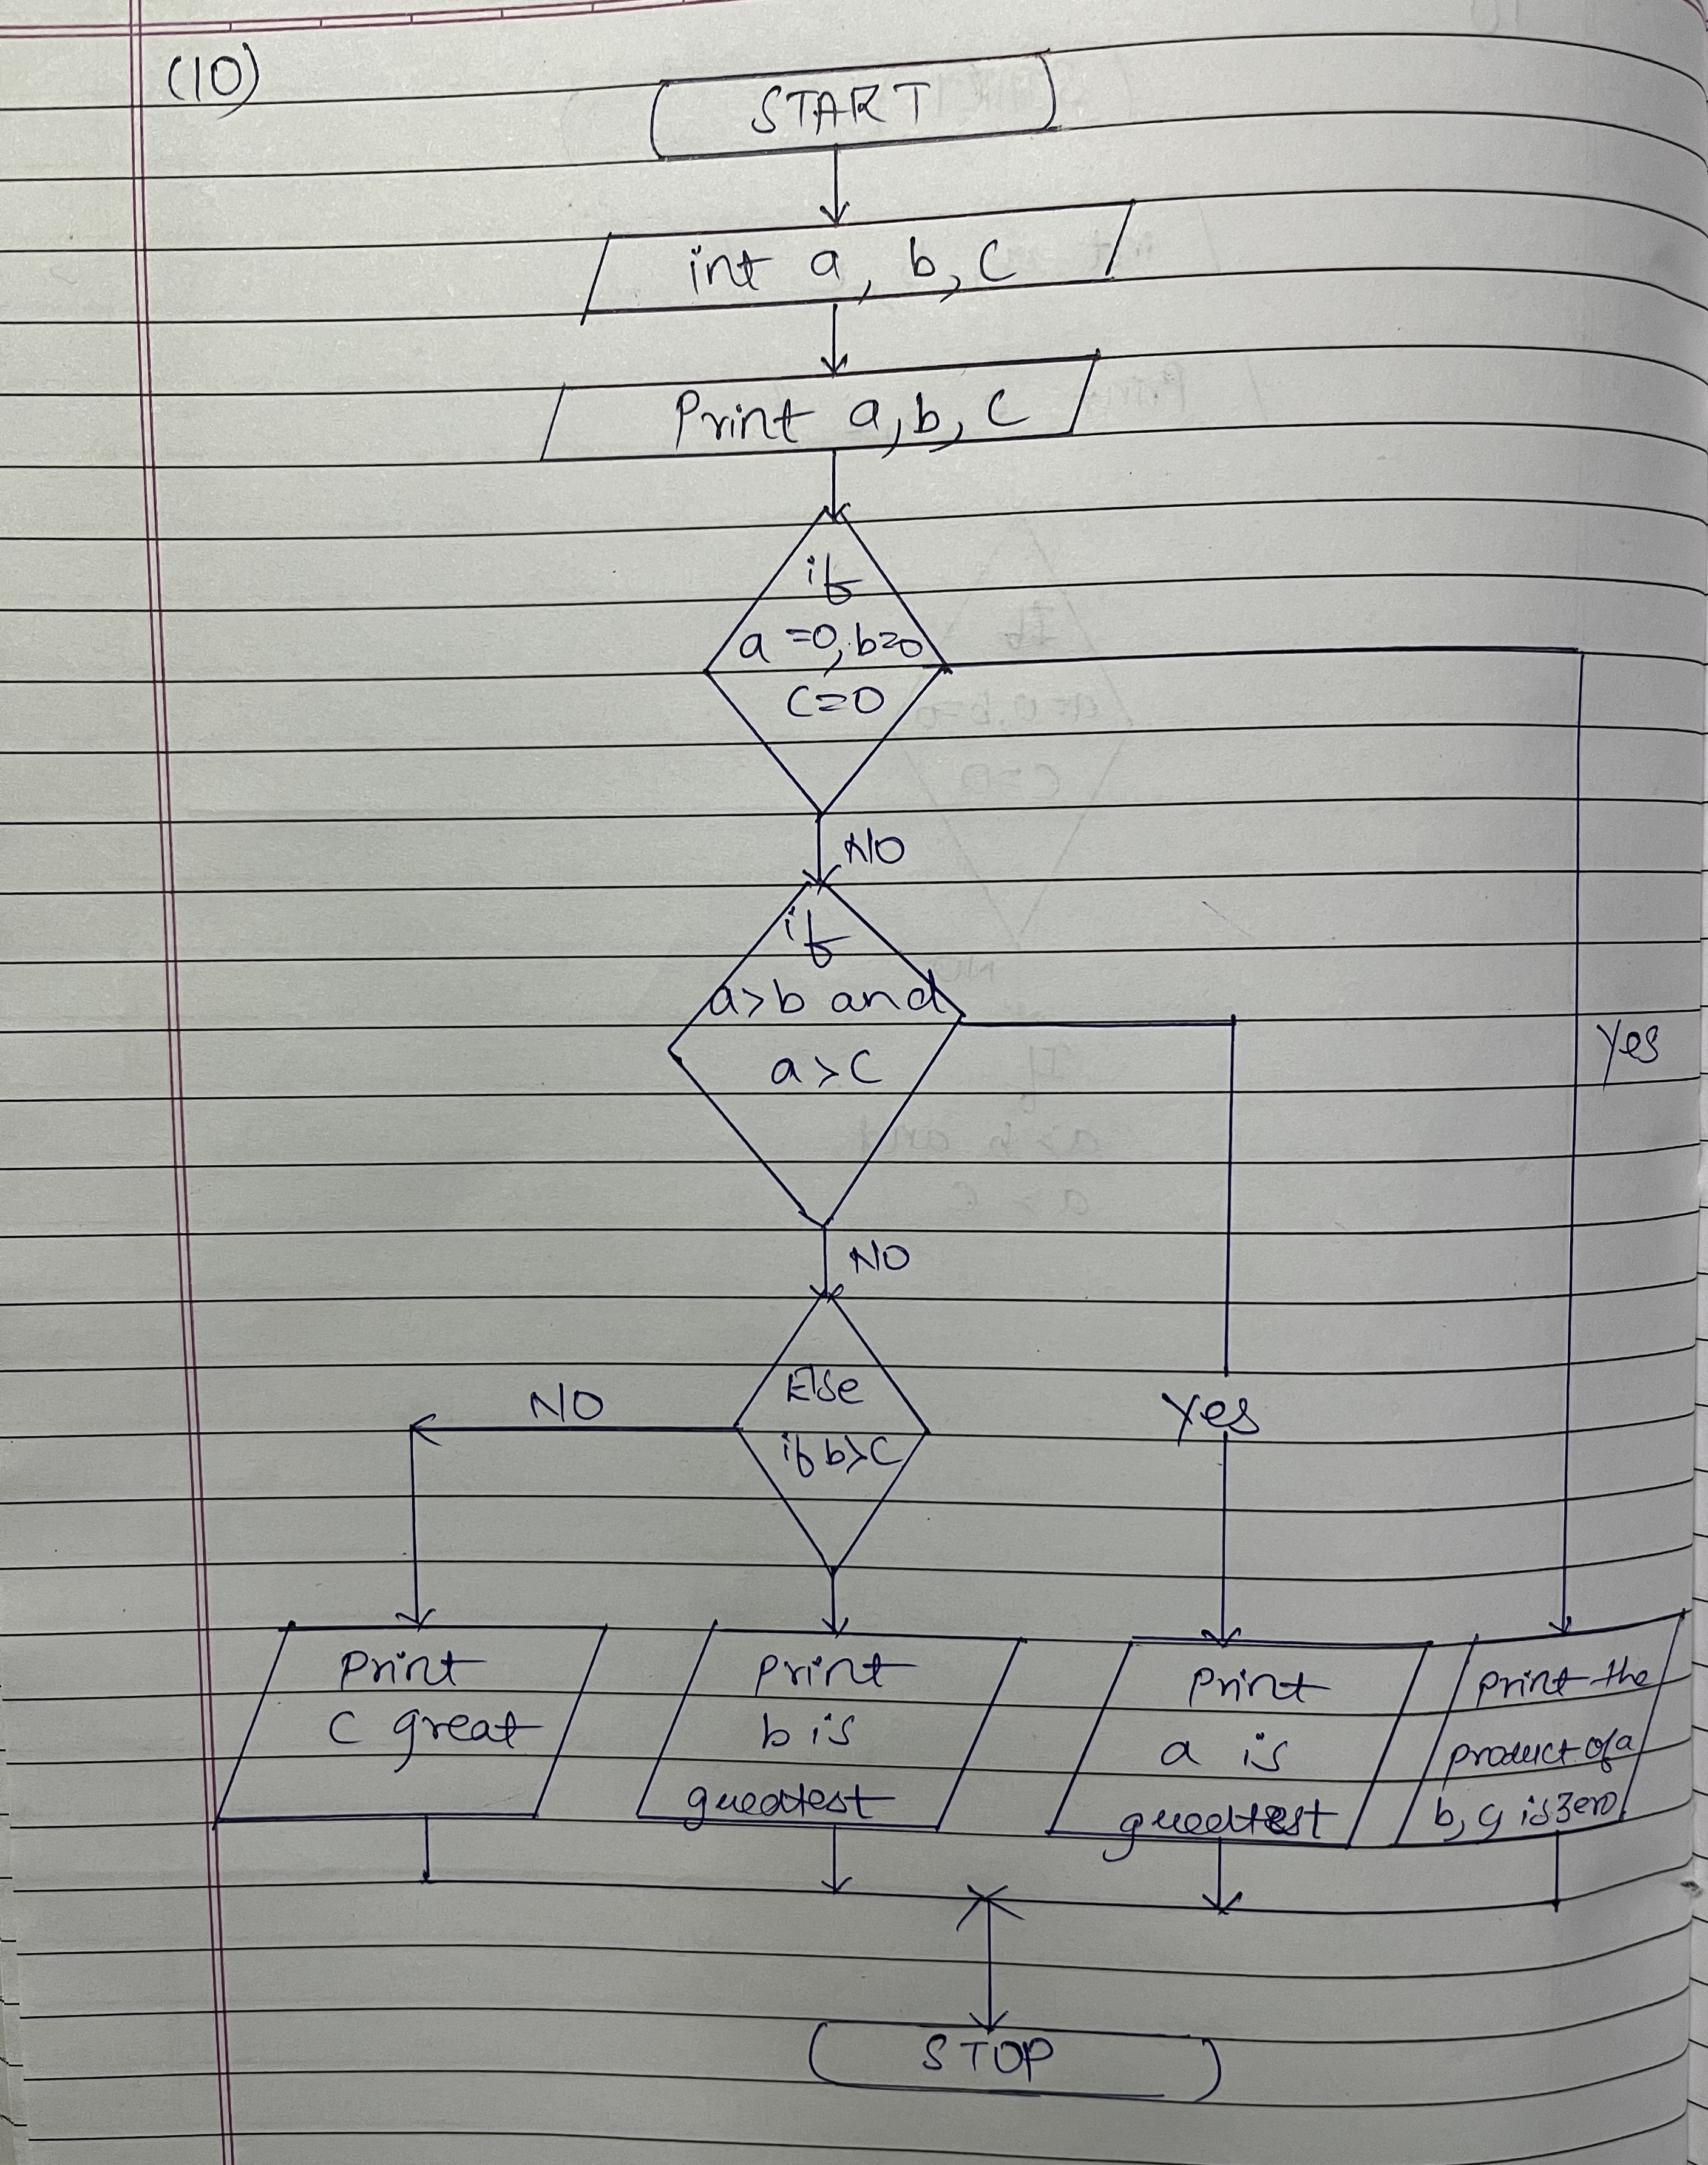 (10)
START
int a, b, c
Print a, b, c
if
a =0, b=0
c=0
NO
if
a>b and
a>c
Yes
NO
Else
if b>c
NO
Yes
Print
c great
Print
b is
greatest
Print
a is
greatest
Print the
product of a
b, c is zero
STOP